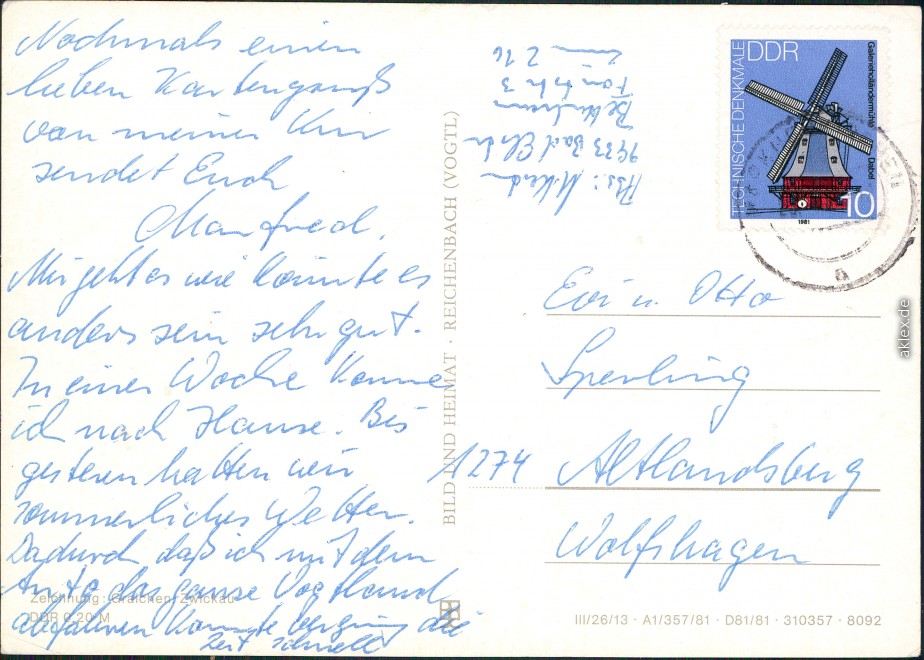 Nochmals einen
lieben Kartengruß
von meiner Kur
sendet Euch
Manfred.
Mir geht es wie könnte es
anders sein sehr gut.
In einer Woche komme
ich nach Hause. Bis
gesteren hatten wir
sommerliches Wetter.
Dadurch daß ich mit dem
Auto das ganse Vogtland
abfahren konnte verging die
Zeit schnell
Zeichnung: Gralchen, Zwickau
DDR 0,20 M
BILD UND HEIMAT · REICHENBACH (VOGTL)
Abs.: M.
9933 Bad Elster
3
Zim 216
TECHNISCHE DENKMALE
DDR
Galerieholländermühle Dabel
10
1981
a
Evi u. Otto
Sperling
1274 Altlandsberg
Wolfshagen
III/26/13 · A1/357/81 · D81/81 · 310357 · 8092
aklex.de